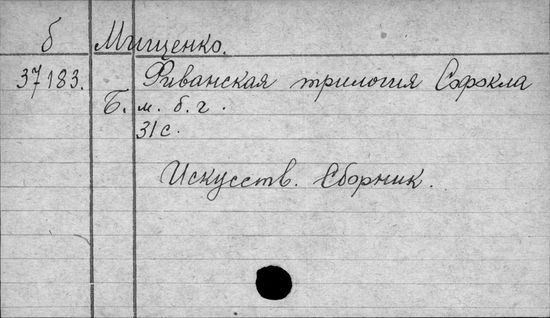 б Мищенко.
37183. Фиванская трилогия Софокла
Б. м. б. г.
31 с.
Искусств. Сборник.